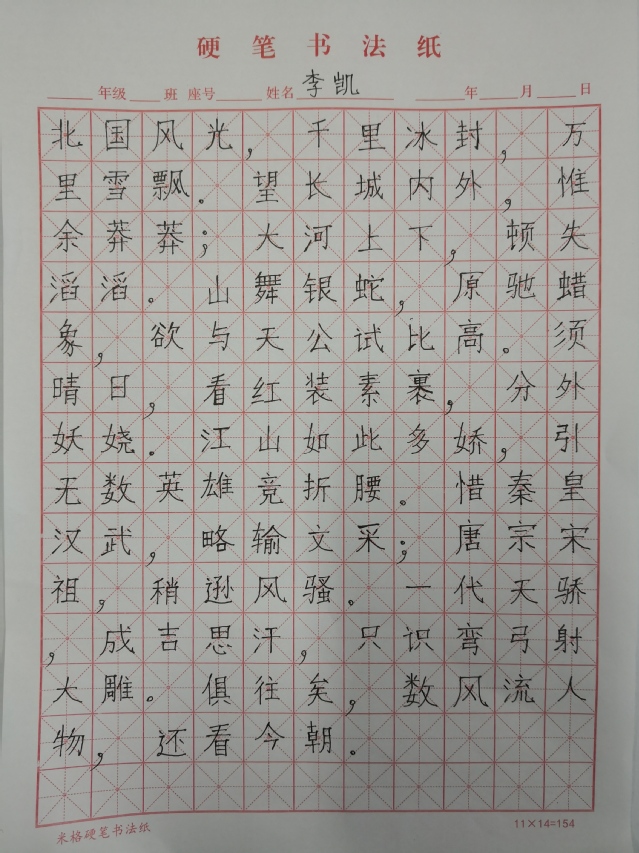 硬笔书法纸
年级 班 座号 姓名 李凯 年 月 日
北国风光，千里冰封，万
里雪飘。望长城内外，惟
余莽莽；大河上下，顿失
滔滔。山舞银蛇，原驰蜡
象，欲与天公试比高。须
晴日，看红装素裹，分外
妖娆。江山如此多娇，引
无数英雄竞折腰。惜秦皇
汉武，略输文采；唐宗宋
祖，稍逊风骚。一代天骄
，成吉思汗，只识弯弓射
大雕。俱往矣，数风流人
物，还看今朝。
米格硬笔书法纸 11×14=154